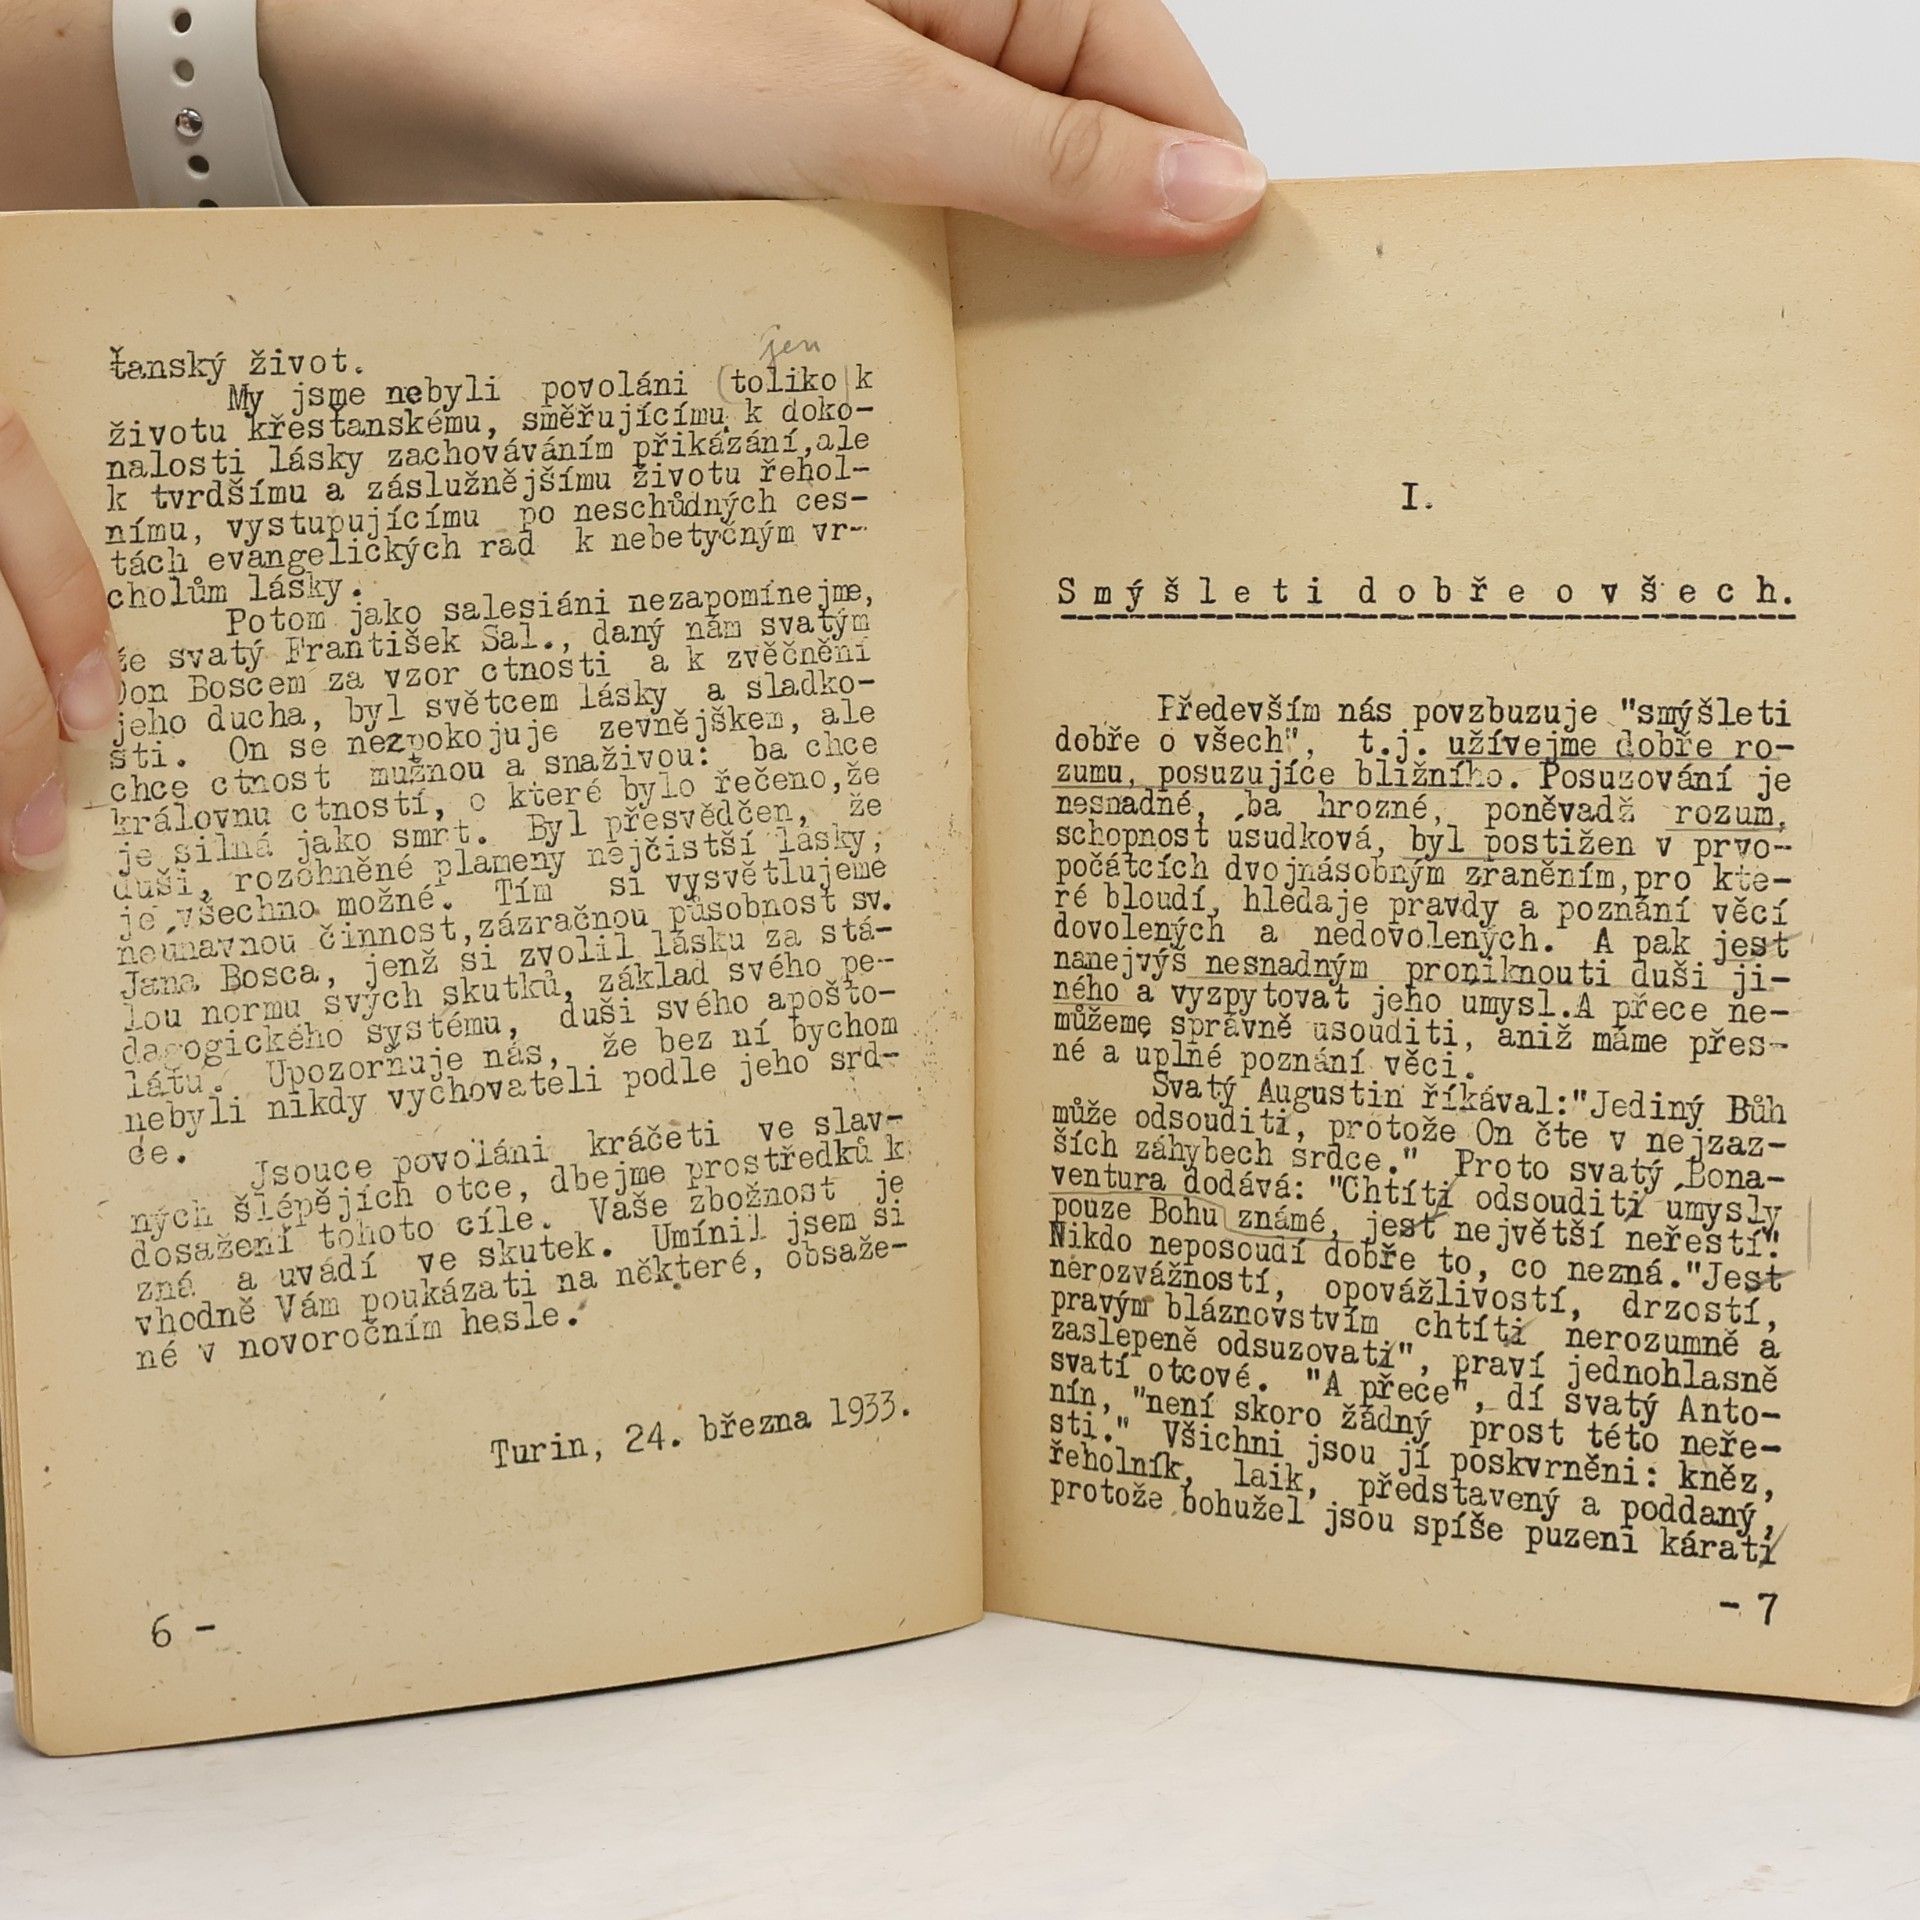 ťanský život.
jen
My jsme nebyli povoláni (toliko) k
životu křesťanskému, směřujícímu k doko-
nalosti lásky zachováváním přikázání,ale
k tvrdšímu a záslužnějšímu životu řehol-
nímu, vystupujícímu po neschůdných ces-
tách evangelických rad k nebetyčným vr-
cholům lásky.
Potom jako salesiáni nezapomínejme,
že svatý František Sal., daný nám svatým
Don Boscem za vzor ctnosti a k zvěčnění
jeho ducha, byl světcem lásky a sladko-
sti. On se nezpokojuje zevnějškem, ale
chce ctnost mužnou a snaživou: ba chce
královnu ctností, o které bylo řečeno,že
je silná jako smrt. Byl přesvědčen, že
duši, rozohněné plameny nejčistší lásky,
je všechno možné. Tím si vysvětlujeme
neunavnou činnost,zázračnou působnost sv.
Jana Bosca, jenž si zvolil lásku za stá-
lou normu svých skutků, základ svého pe-
dagogického systému, duši svého apošto-
látu. Upozorňuje nás, že bez ní bychom
nebyli nikdy vychovateli podle jeho srd-
ce.
Jsouce povoláni kráčeti ve slav-
ných šlépějích otce, dbejme prostředků k
dosažení tohoto cíle. Vaše zbožnost je
zná a uvádí ve skutek. Umínil jsem si
vhodně Vám poukázati na některé, obsaže-
né v novoročním hesle.
Turin, 24. března 1933.
6 -
I.
Smýšleti dobře o všech.
Především nás povzbuzuje "smýšleti
dobře o všech", t.j. užívejme dobře ro-
zumu, posuzujíce bližního. Posuzování je
nesnadné, ba hrozné, poněvadž rozum,
schopnost usudková, byl postižen v prvo-
počátcích dvojnásobným zraněním,pro kte-
ré bloudí, hledaje pravdy a poznání věcí
dovolených a nedovolených. A pak jest
nanejvýš nesnadným proniknouti duši ji-
ného a vyzpytovat jeho umysl.A přece ne-
můžeme správně usouditi, aniž máme přes-
né a uplné poznání věci.
Svatý Augustin říkával:"Jediný Bůh
může odsouditi, protože On čte v nejzaz-
ších záhybech srdce." Proto svatý Bona-
ventura dodává: "Chtíti odsouditi umysly
pouze Bohu známé, jest největší neřestí."
Nikdo neposoudí dobře to, co nezná."Jest
nerozvážností, opovážlivostí, drzostí,
pravým bláznovstvím chtíti nerozumně a
zaslepeně odsuzovati", praví jednohlasně
svatí otcové. "A přece", dí svatý Anto-
nín, "není skoro žádný prost této neře-
sti." Všichni jsou jí poskvrněni: kněz,
řeholník, laik, představený a poddaný,
protože bohužel jsou spíše puzeni kárati
- 7